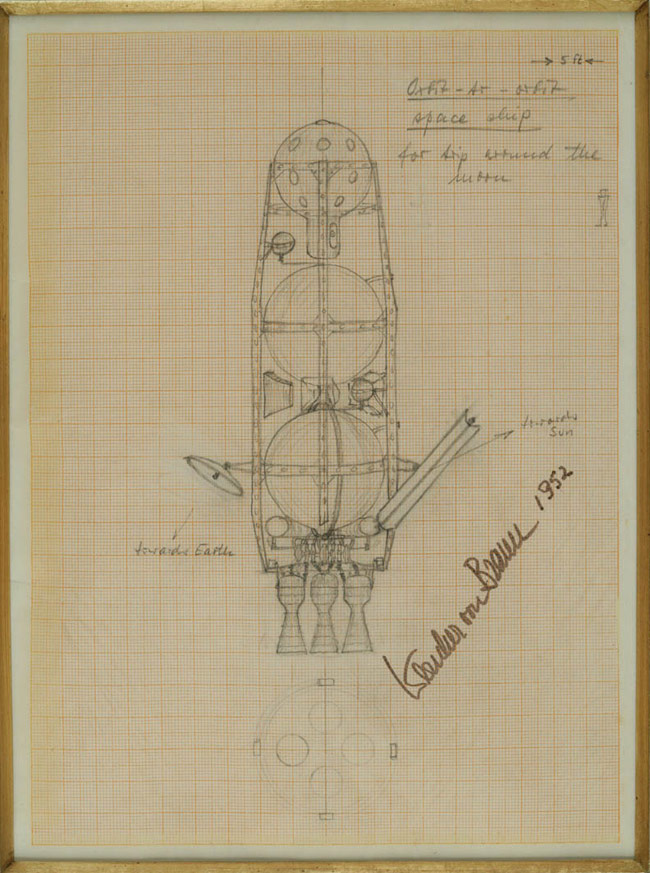 5 ft
Orbit-to-orbit
space ship
for trip around the
moon
towards
Sun
towards Earth
Wernher von Braun 1952